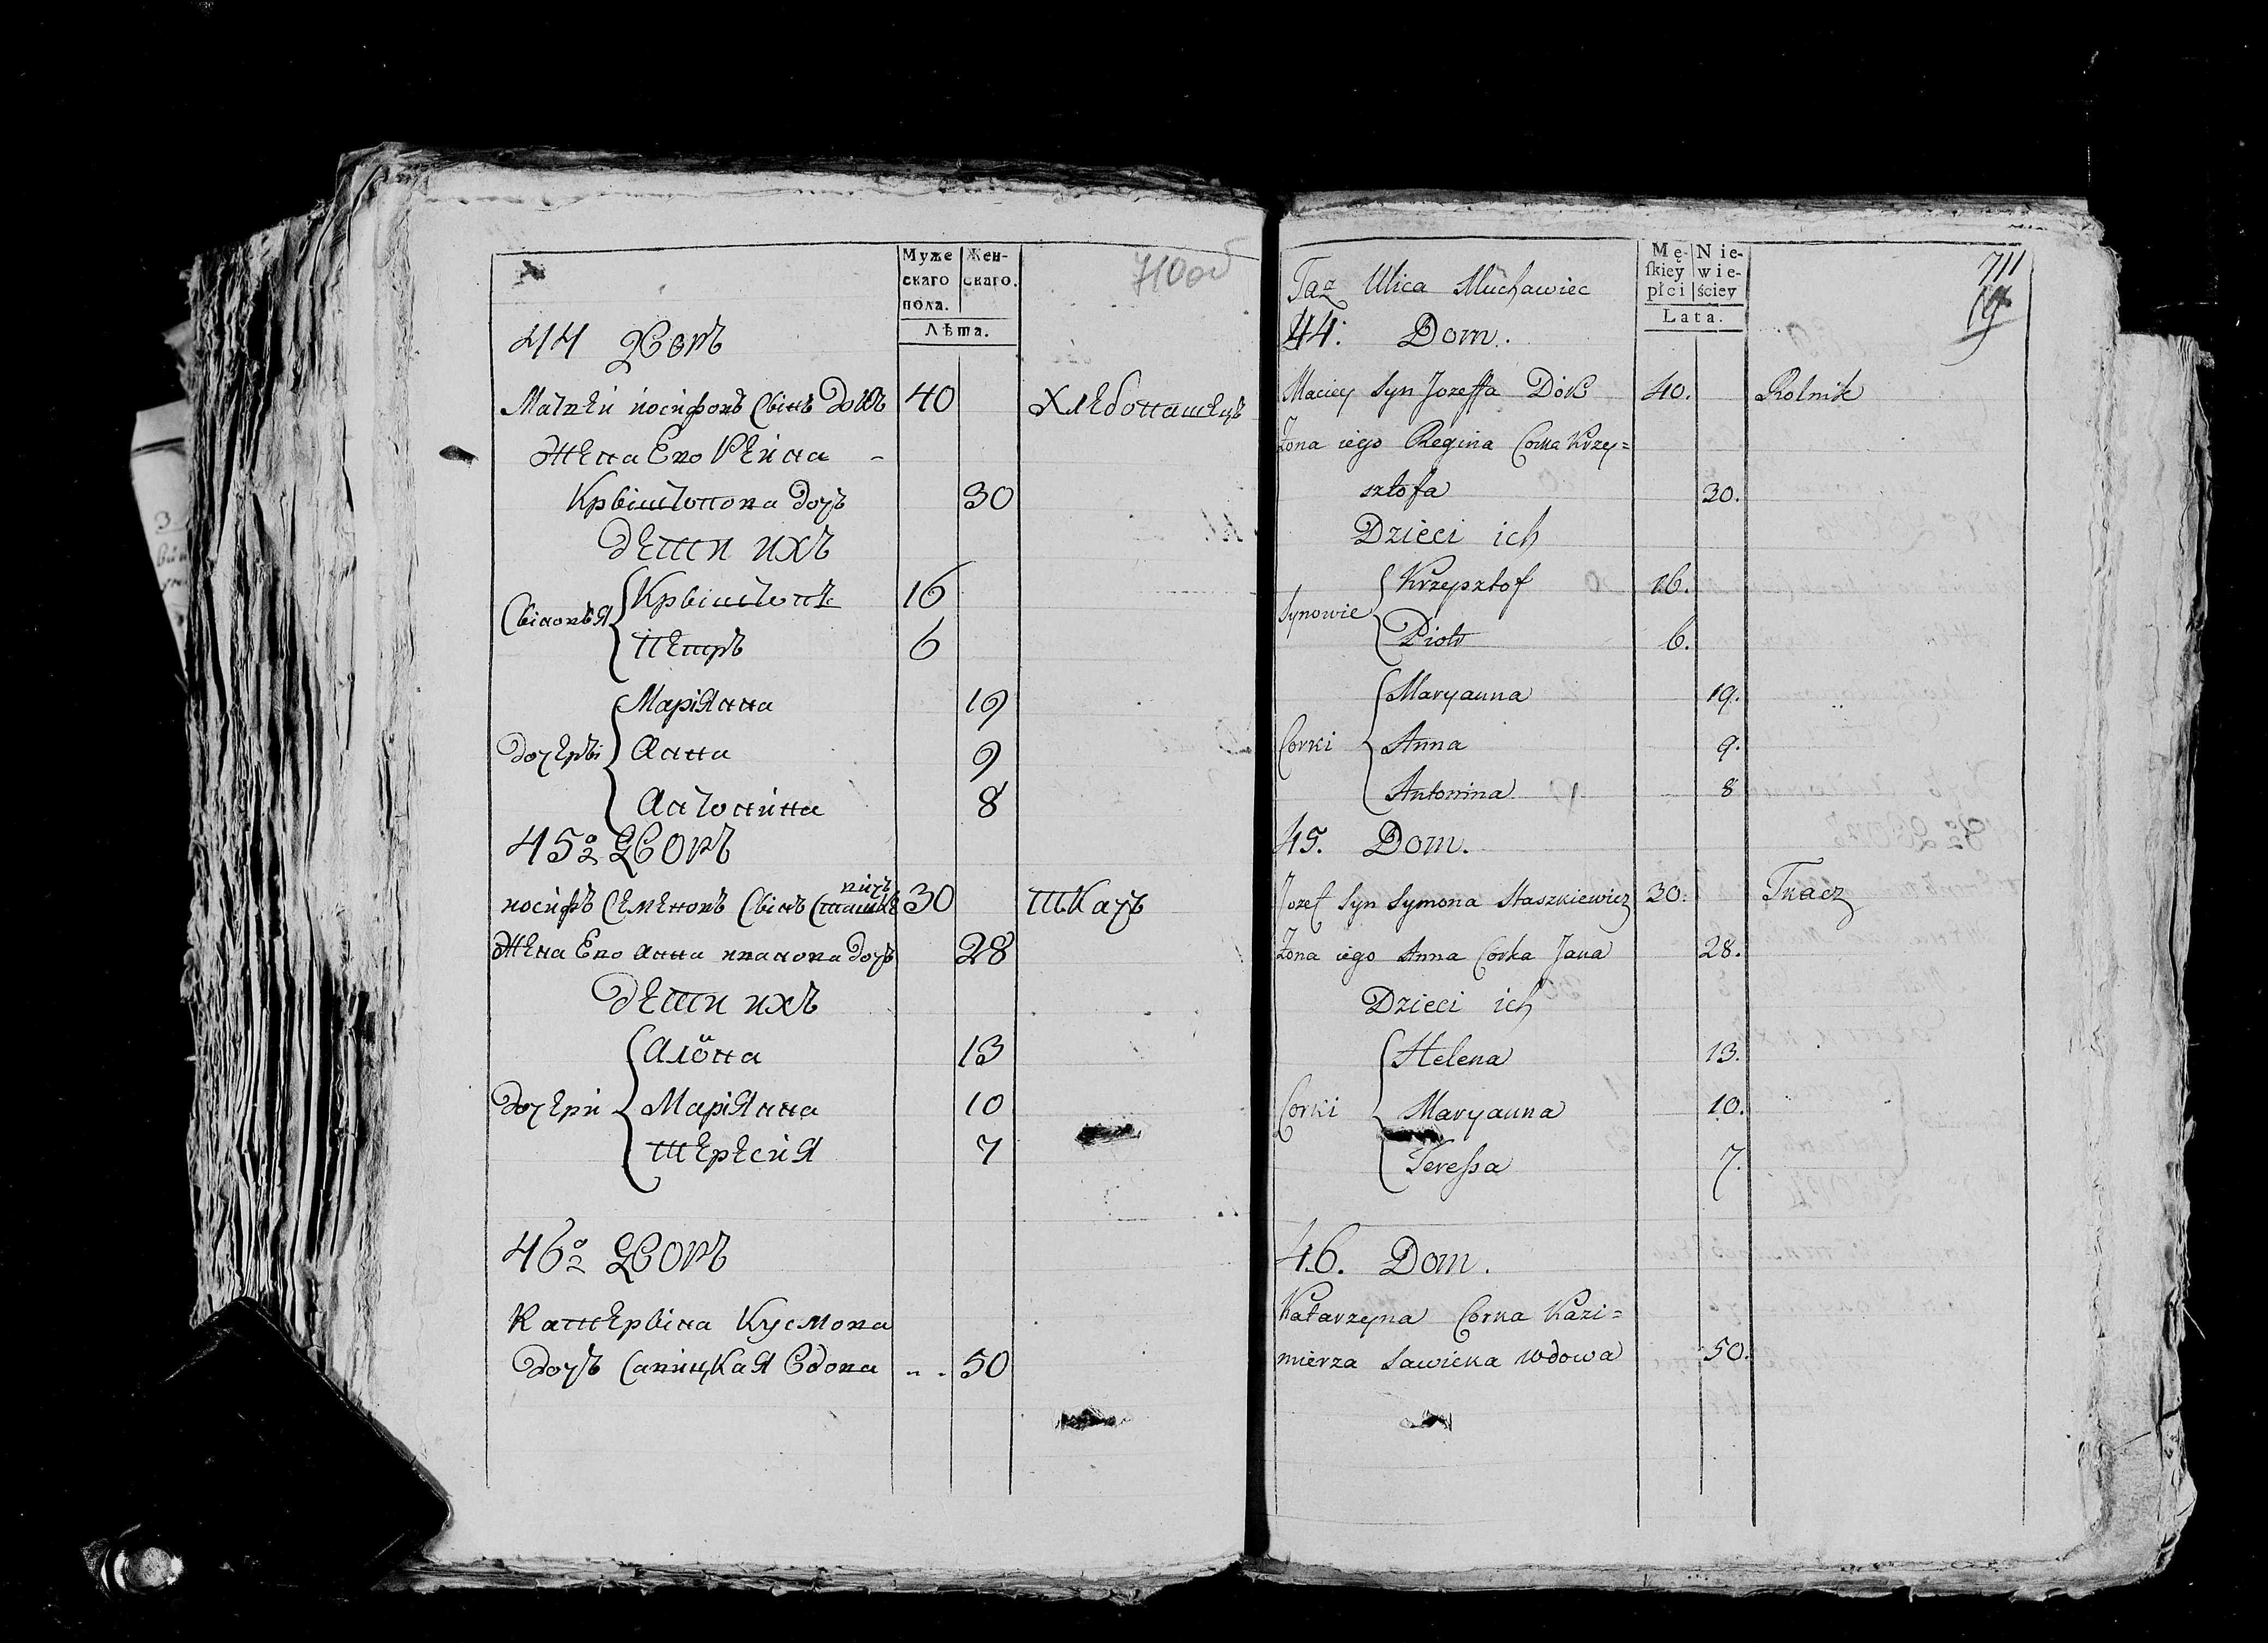 Муже Жен-
скаго скаго.
пола.
Лѣта.
710 об
44 Дворъ
Матвей иосифовъ Сынъ 40 Хлебопашецъ
Жена Его Реина
Крыштопова дочь 30
дети ихъ
Сыновья
Крыштопъ 16
Петръ 6
дочеры
Марiянна 19
Анна 9
Антонина 8
45º Дворъ
иосифъ Семеновъ Сынъ Сташкевичъ 30 Ткачъ
Жена Его Анна иванова дочь 28
дети ихъ
дочери
Алöна 13
Марiянна 10
Тересия 7
46º Дворъ
Катерына Кусмова
дочь Савицкая Вдова 50
Mę- Nie-
ſkiey wie-
płci ściey
Lata.
711
Taż Ulica Muchawiec
44. Dom.
Maciey Syn Jozeffa 40. Rolnik
Żona iego Regina Corka Krzy=
sztofa 30.
Dzieci ich
Synowie
Krzysztof 16.
Piotr 6.
Corki
Maryanna 19.
Anna 9.
Antonina 8
45. Dom.
Jozef Syn Symona Staszkiewicz 30. Tkacz
Żona iego Anna Corka Jana 28.
Dzieci ich
Corki
Helena 13.
Maryanna 10.
Teressa 7.
46. Dom.
Katarzyna Corka Kazi=
mierza Sawicka Wdowa 50.